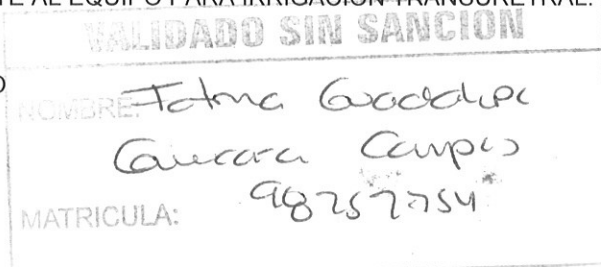 TE AL EQUIPO PARA IRRIGACIÓN TRANSURETRAL.
VALIDADO SIN SANCION
NOMBRE: Fatma Guadalupe
Guevara Campos
MATRICULA: 98257754